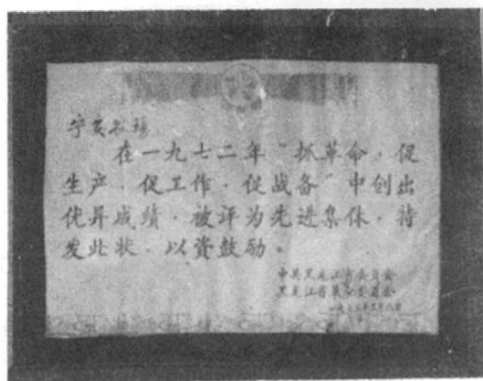 宁安农场
在一九七二年“抓革命、促
生产、促工作、促战备”中创出
优异成绩,被评为先进集体,特
发此状,以资鼓励。
中共黑龙江省委员会
黑龙江省革命委员会